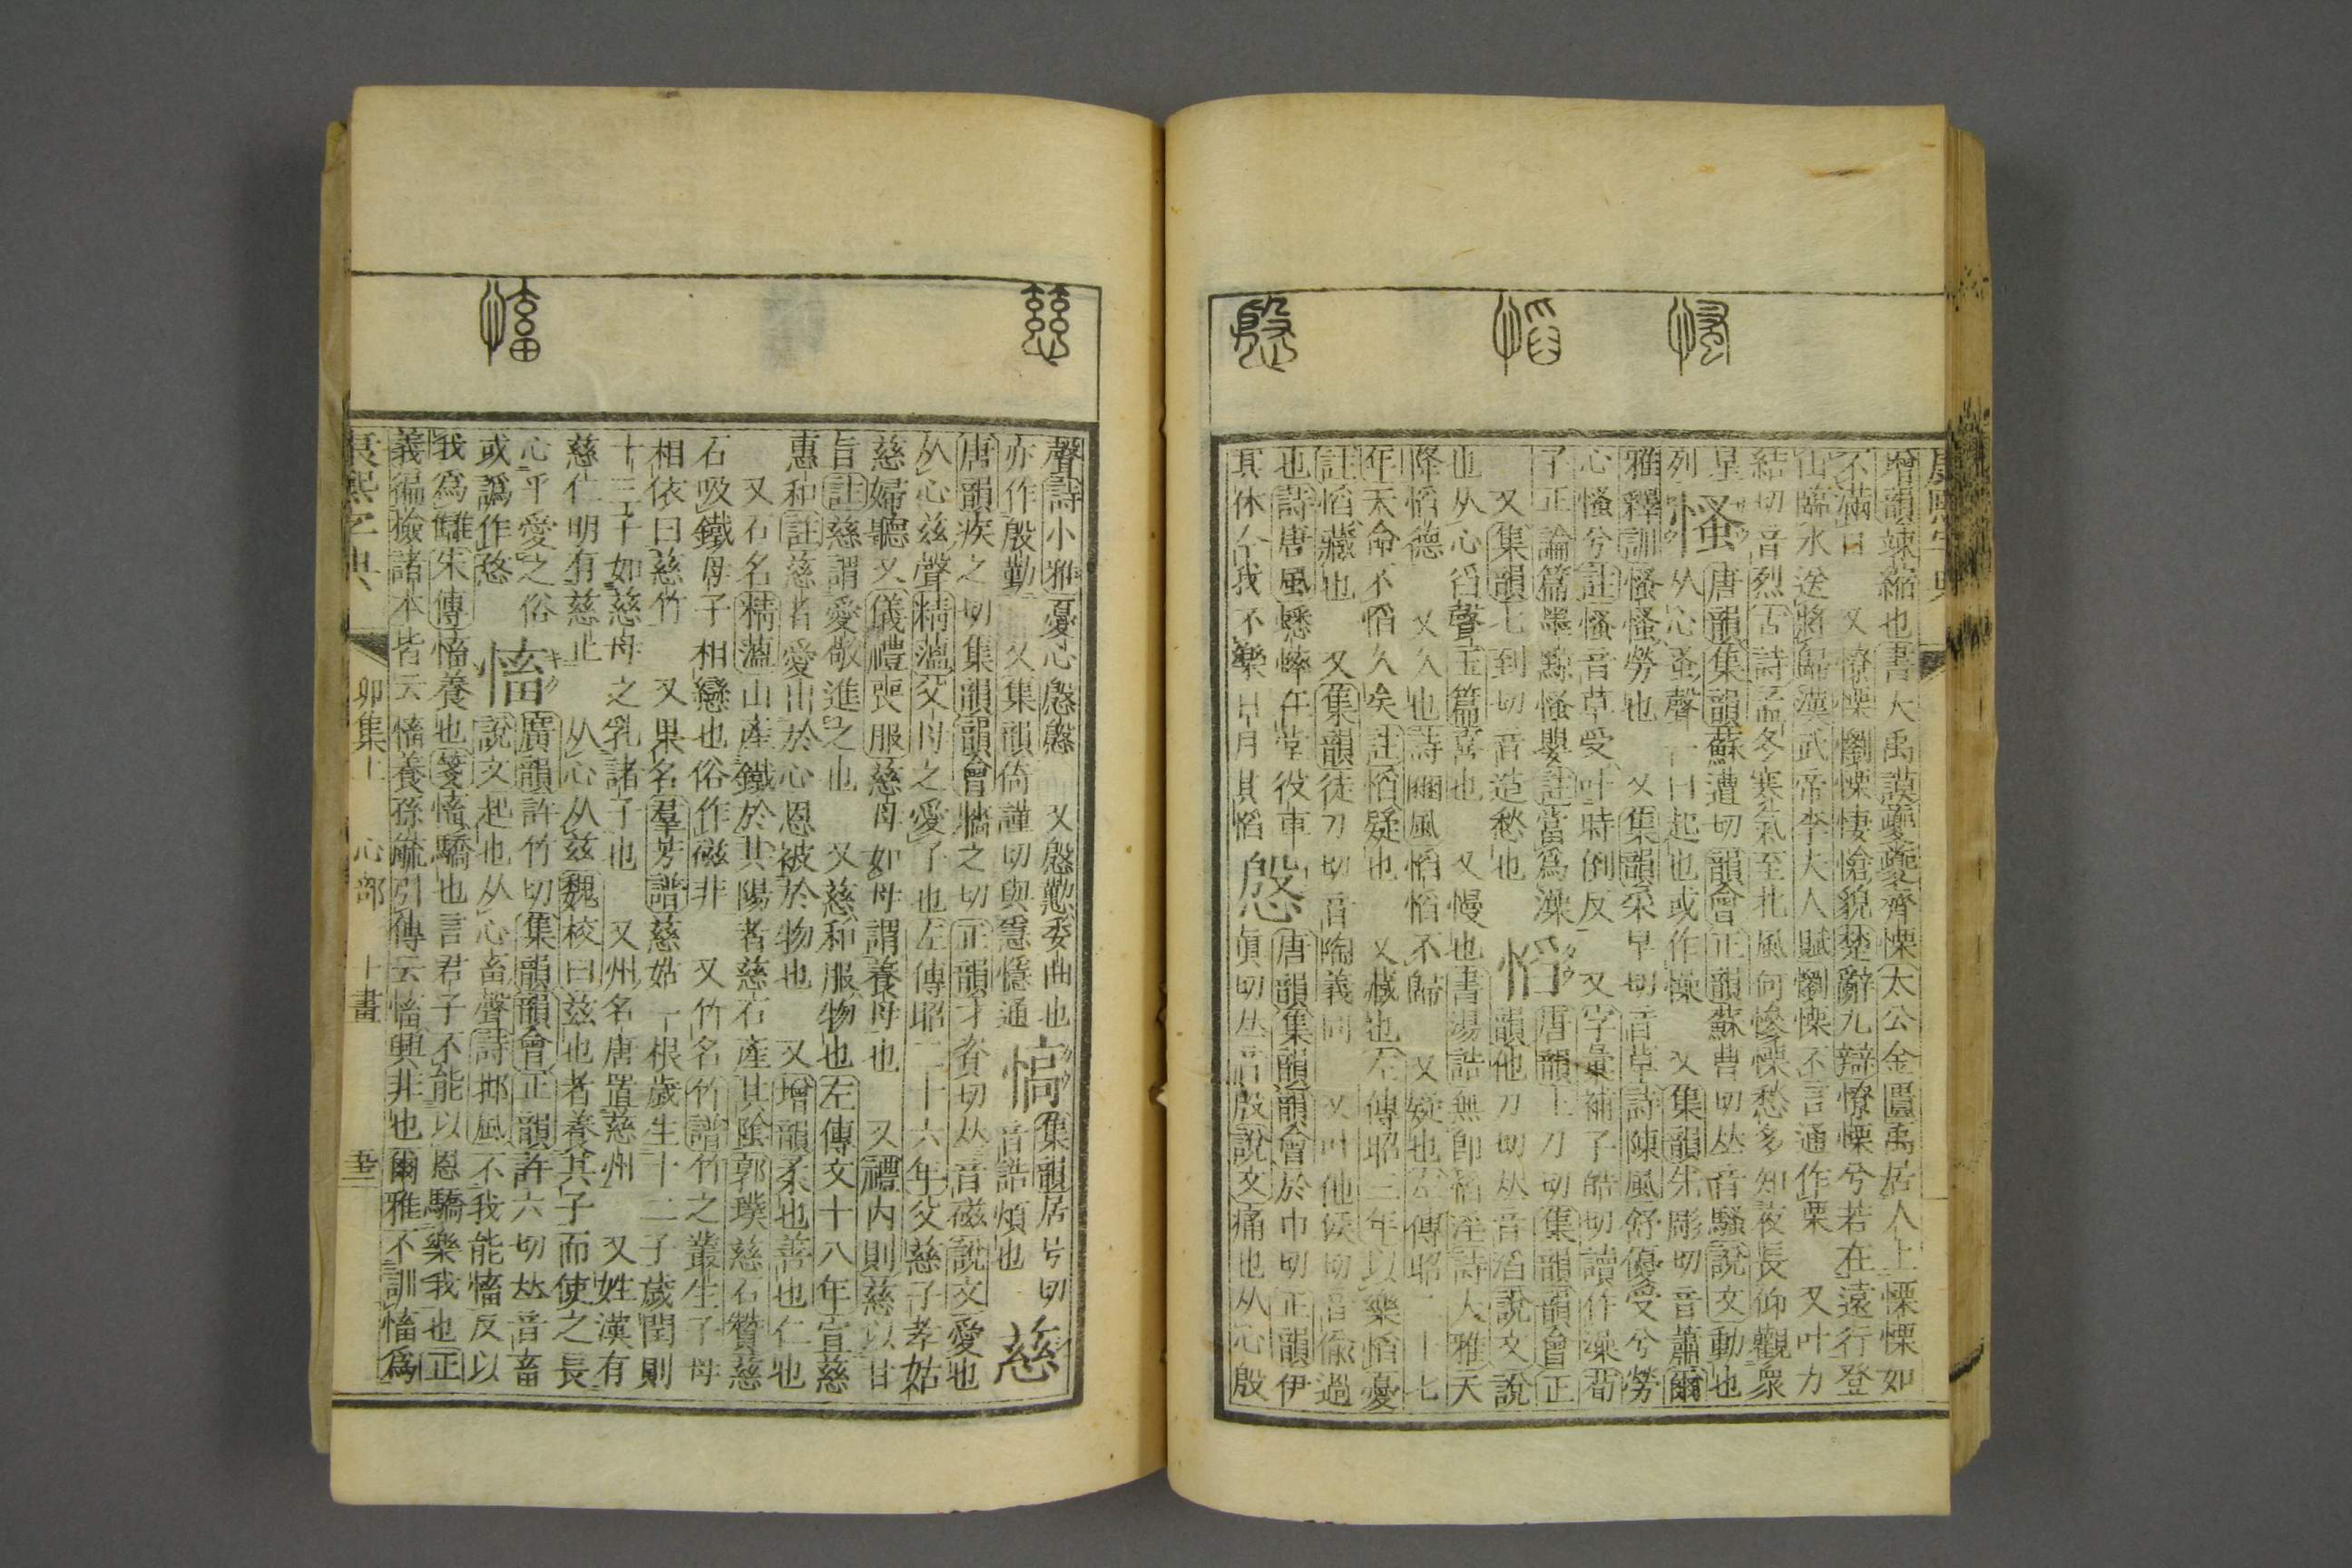 康熙字典
增韻竦縮也書大禹謨夔夔齊慄太公金匱禹居人上慄慄如
不滿日 又憭慄懰慄悽愴貌楚辭九辯憭慄兮若在遠行登
山臨水送將歸漢武帝李夫人賦懰慄不言通作栗 又叶力
結切音烈古詩孟冬寒氣至北風何慘慄愁多知夜長仰觀衆
星
列
慅
唐韻集韻蘇遭切韻會正韻蘇曹切𠀤音騷說文動也
从心蚤聲一曰起也或作懆 又集韻先彫切音蕭爾
雅釋訓慅慅勞也 又集韻采早切音草詩陳風舒優受兮勞
心慅兮註慅音草受叶時倒反 又字彙補子皓切讀作澡荀
子正論篇墨黥慅嬰註當爲澡
又集韻七到切音造愁也
慆
唐韻土刀切集韻韻會正
韻他刀切𠀤音滔說文說
也从心舀聲玉篇喜也 又慢也書湯誥無卽慆淫詩大雅天
降慆德 又久也詩豳風慆慆不歸 又疑也左傳昭二十七
年天命不慆久矣註慆疑也 又藏也左傳昭三年以樂慆憂
註慆藏也 又集韻徒刀切音陶義同 又叶他侯切音偸過
也詩唐風蟋蟀在堂役車
其休今我不樂日月其慆
慇
唐韻集韻韻會於巾切正韻伊
眞切𠀤音殷說文痛也从心殷
聲詩小雅憂心慇慇 又慇懃委曲也
亦作殷勤 又集韻倚謹切與㥯通
集韻居号切
音誥煩也
慈
唐韻疾之切集韻韻會牆之切正韻才資切𠀤音磁說文愛也
从心兹聲精薀父母之愛子也左傳昭二十六年父慈子孝姑
慈婦聽 又儀禮喪服慈母如母謂養母也 又禮內則慈以甘
旨註慈謂愛敬進之也 又慈和服物也左傳文十八年宣慈
惠和註慈者愛出於心恩被於物也 又增韻柔也善也仁也
又石名精薀山產鐵於其陽者慈石產其陰郭璞慈石贊慈
石吸鐵母子相戀也俗作磁非 又竹名竹譜竹之叢生子母
相依曰慈竹 又果名羣芳譜慈姑一根歲生十二子歲閏則
十三子如慈母之乳諸子也 又州名唐置慈州 又姓漢有
慈仁明有慈止
心乎愛之俗
从心从兹魏校曰兹也者養其子而使之長
或譌作慈
慉
廣韻許竹切集韻韻會正韻許六切𠀤音畜
說文起也从心畜聲詩邶風不我能慉反以
我爲讎朱傳慉養也箋慉驕也言君子不能以恩驕樂我也正
義徧檢諸本皆云慉養孫毓引傳云慉興非也爾雅不訓慉爲
康熙字典 卯集上 心部 十畫
慅
慆
慇
慈
慉